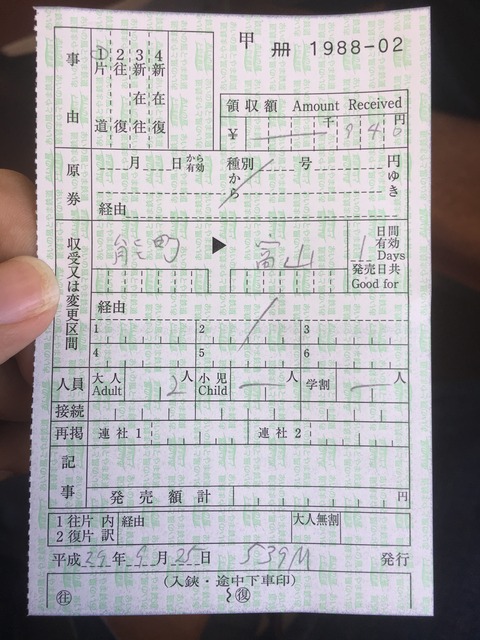 甲 冊 1988-02
事由
①片道
2往復
3新在往
4新在復
領収額 Amount Received
¥ 千 940 円
原券
月 日 から有効 種別 号 円
から ゆき
経由
収受又は変更区間
能町 ▶ 富山
1 日間有効 Days
発売日共 Good for
経由
1 2 3
4 5 6
人員 大人 Adult 2人 小児 Child 人 学割 人
接続
再掲 連社1 連社2
記事
発売額計 円
1往片 内 経由 大人無割
2復片 訳
平成29年9月25日 539M 発行
(入鋏・途中下車印)
往 復